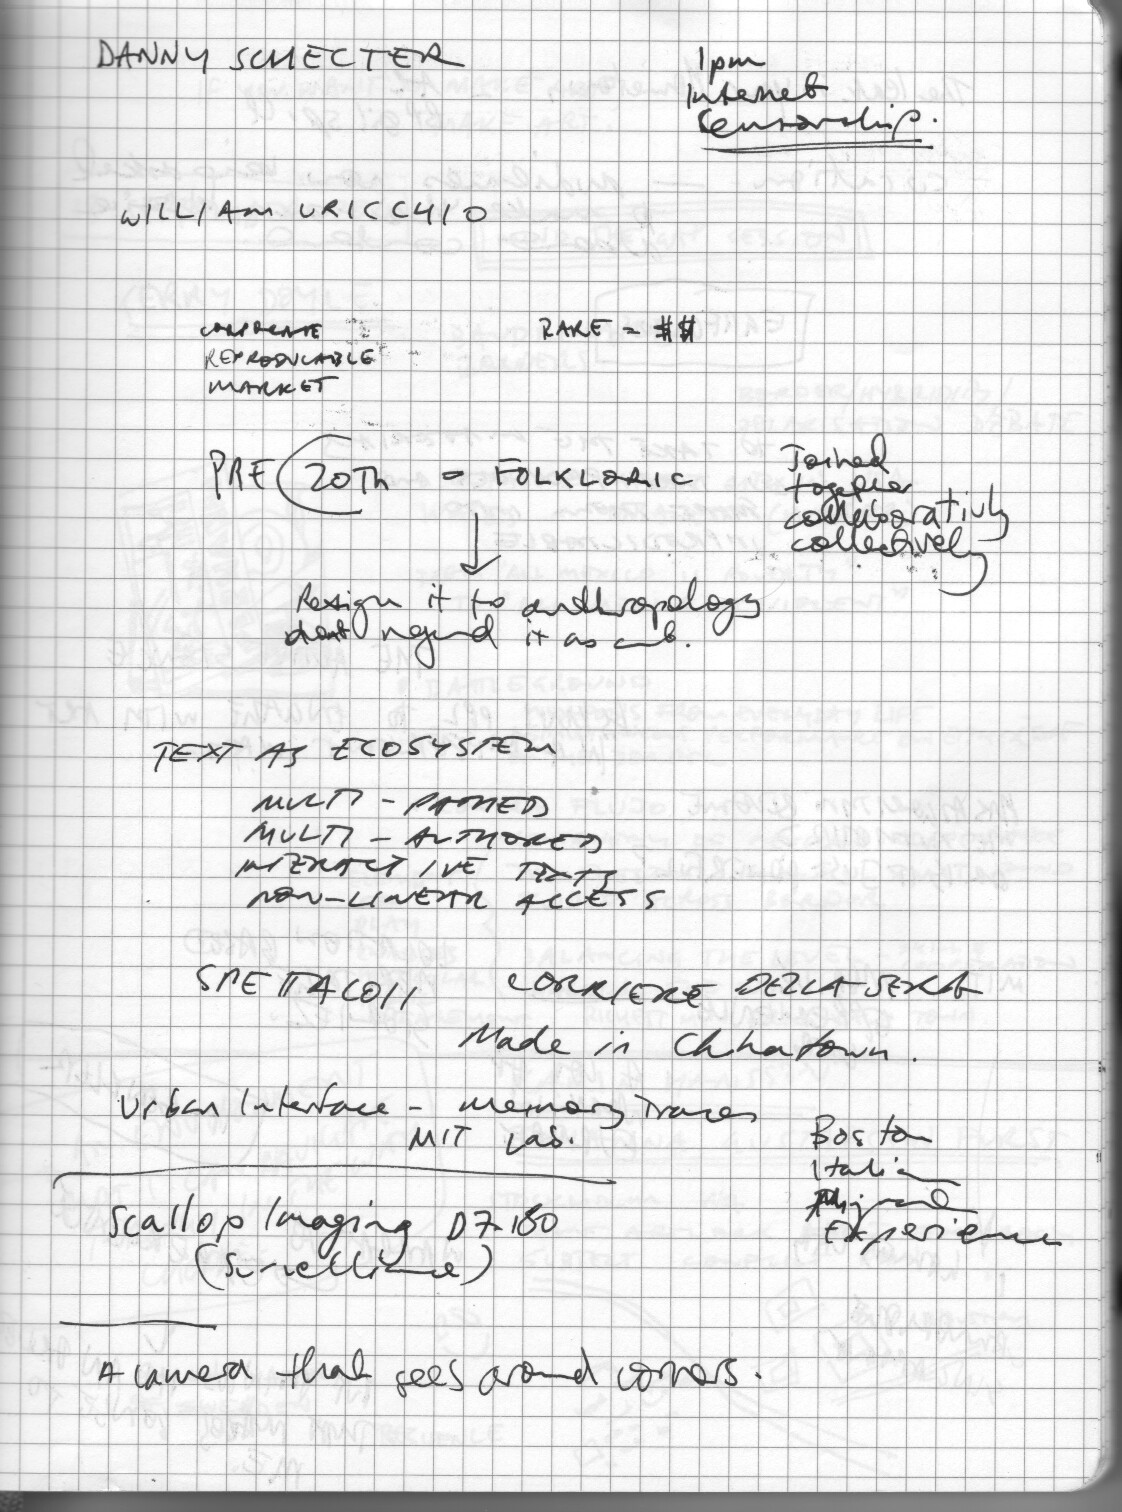 DANNY SCHECTER
1pm
Internet
Sensorship.
WILLIAM URICCHIO
CORPORATE
REPRODUCABLE
MARKET
RARE = $$
PRE 20Th = FOLKLORIC
Joined
together
collaborativly
collectively
Resign it to anthropology
dont regard it as cult.
TEXT AS ECOSYSTEM
MULTI - PATHED
MULTI - AUTHORED
INTERACTIVE TEXTS
NON-LINEAR ACCESS
SPETTACOLI CORRIERE DELLA SERA
Made in Chinatown.
Urban Interface - Memory Traces
MIT Lab.
Boston
Italian
Migrant
Experience
Scallop Imaging D7-180
(Surveillance)
A camera that sees around corners.